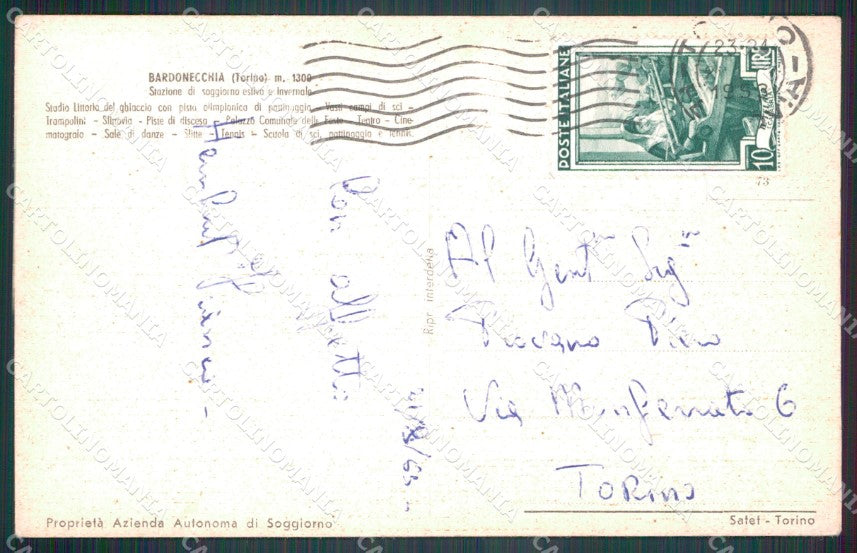 BARDONECCHIA (Torino) m. 1300
Stazione di soggiorno estivo e invernale
Stadio Littorio del ghiaccio con pista olimpionica di pattinaggio - Vasti campi di sci -
Trampolini - Slittovia - Piste di discesa - Palazzo Comunale delle Feste - Teatro - Cine-
matografo - Sale di danze - Slitte - Tennis - Scuola di sci, pattinaggio e tennis.
POSTE ITALIANE
LIRE
10
73
23-24
Con affetto
Ripr. interdetta
Al Gent. Sig.
Piero
Via Monferrato 6
Torino
Proprietà Azienda Autonoma di Soggiorno
Satet - Torino
CARTOLINOMANIA